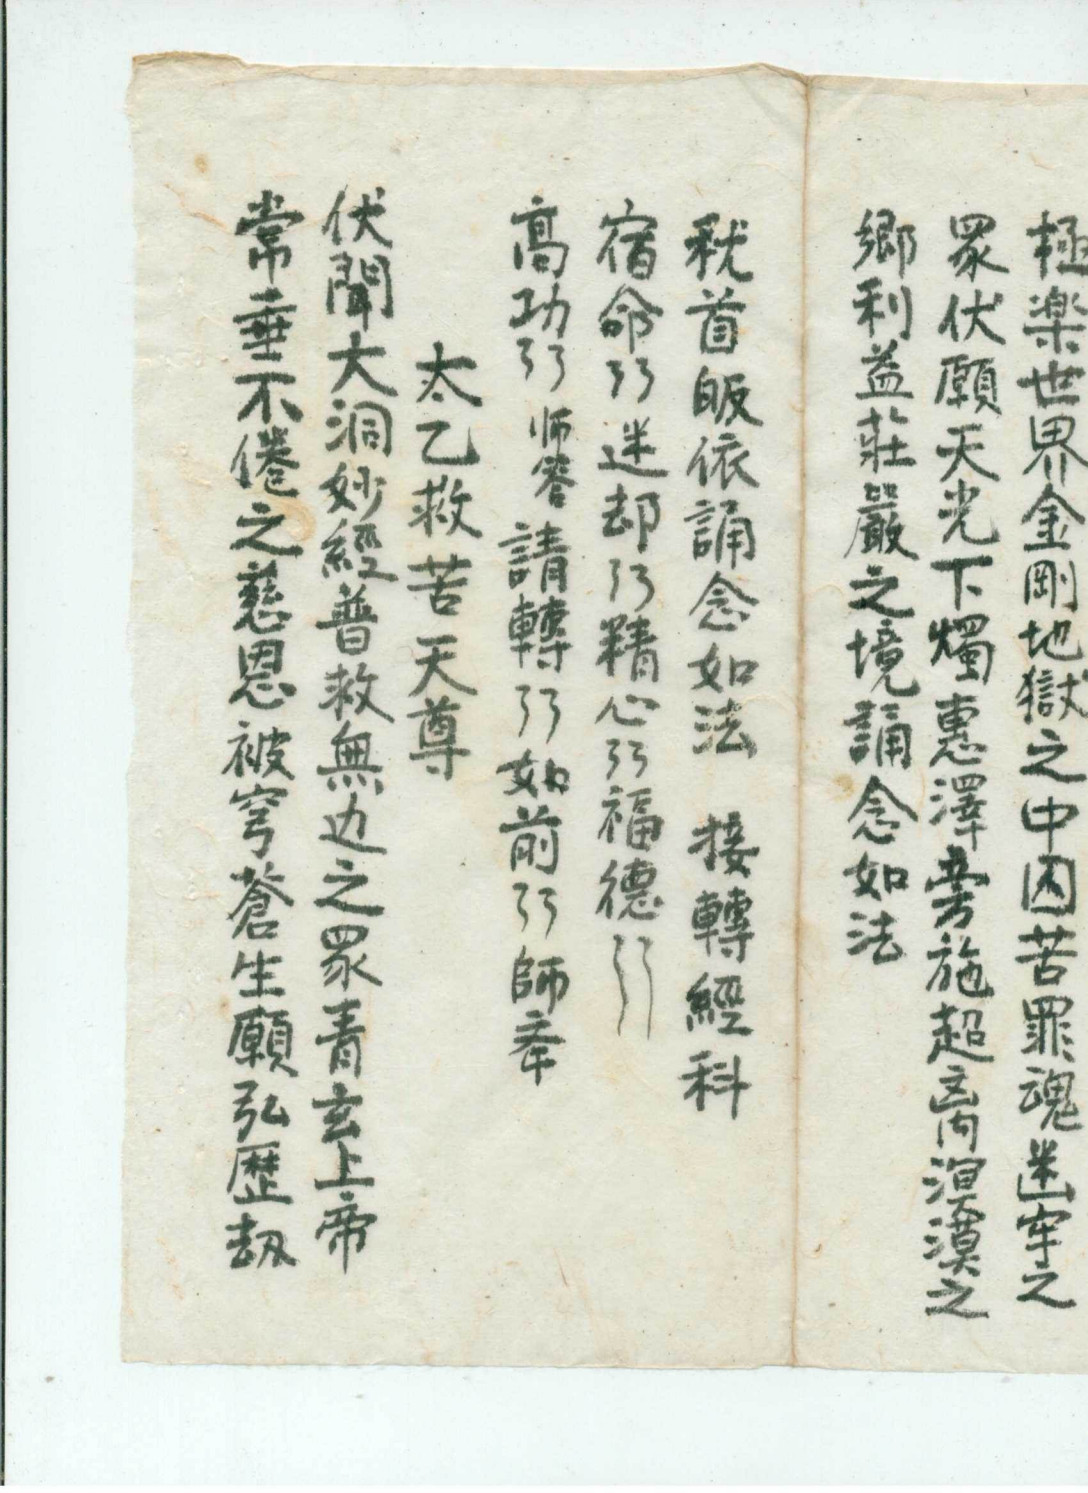 極楽世界金剛地獄之中囚苦罪魂迷牢之
眾伏願天光下燭惠澤旁施超离溟漠之
鄉利益莊嚴之境誦念如法
稽首皈依誦念如法　接轉經科
宿命　迷却　精心　福德
高功　师答　請轉　如前　師奉
太乙救苦天尊
伏聞大洞妙經普救無边之眾青玄上帝
常垂不倦之慈恩被穹蒼生願弘歷刼